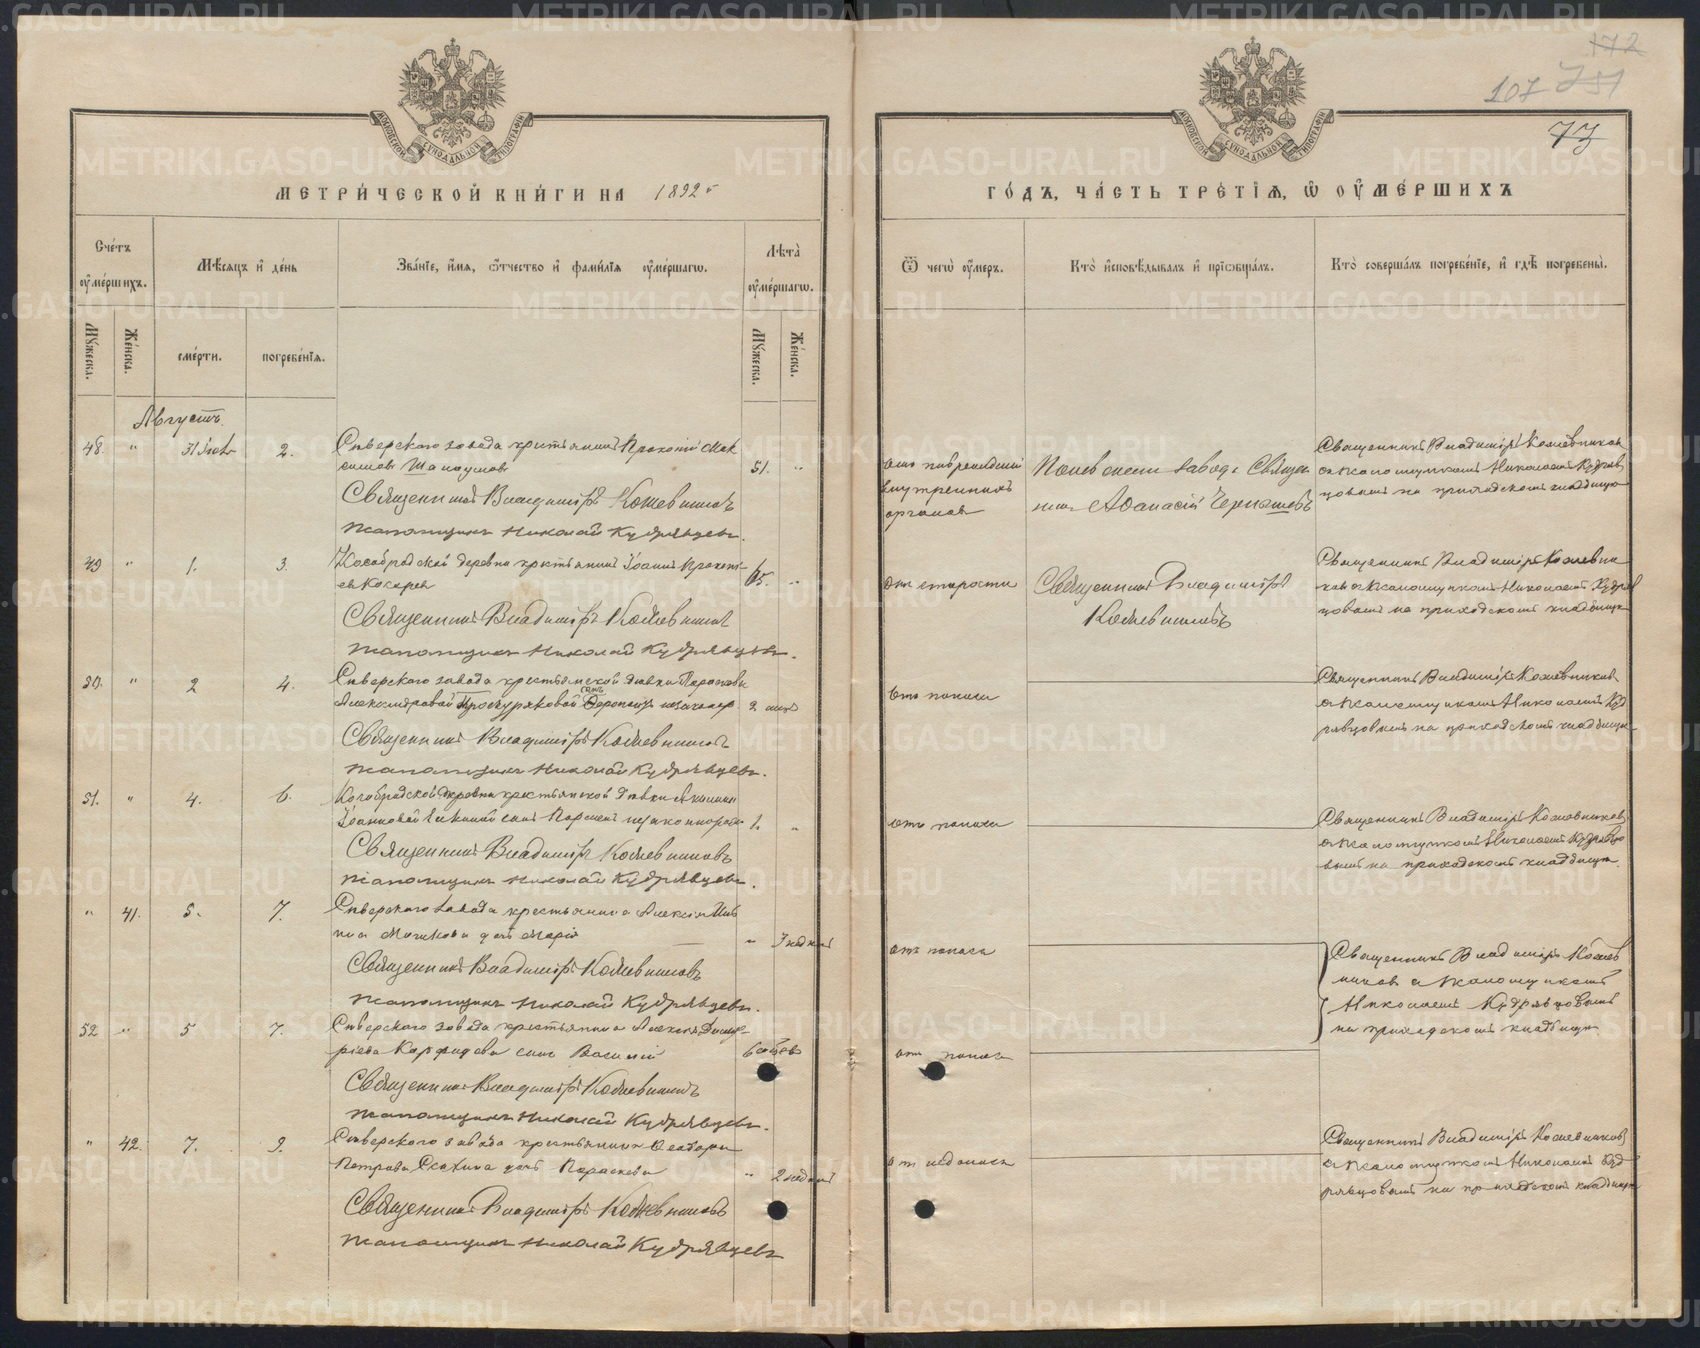 172
107 751
73
МЕТРИ́ЧЕСКОЙ КНИ́ГИ НА 1892 г
ГО́ДЪ, ЧА́СТЬ ТРЕ́ТІѦ, Ѽ ОУ҆МЕ́РШИХЪ
Сче́тъ оу҆ме́ршихъ.
Мѣ́сяцъ и҆ де́нь
Зва́нїе, и҆́мѧ, ѻ҆́тчество и҆ фами́лїѧ оу҆ме́ршагѡ.
Лѣ́та̀ оу҆ме́ршагѡ.
Ѿ чегѡ̀ оу҆́меръ.
Кто̀ и҆сповѣ́дывалъ и҆ прїѻбща́лъ.
Кто̀ соверша́лъ погребе́нїе, и҆ гдѣ̀ погребены̀.
Мꙋ́жеска.
Же́нска.
сме́рти.
погребе́нїѧ.
Мꙋ́жеска.
Же́нска.
Августъ.
48. " 31 Іюля 2. Сѣверскаго завода крестьянинъ Прокопій Мак
симовъ Шапоумовъ 51. "
Священникъ Владиміръ Кожевниковъ
Псаломщикъ Николай Кудрявцевъ.
отъ поврежденій
внутреннихъ
органовъ
завода Священ
никъ Аѳанасій Чернышовъ
Священникъ Владиміръ Кожевниковъ
съ псаломщикомъ Николаемъ Кудряв
цовымъ на приходскомъ кладбищѣ
49 " 1. 3. Кособродской деревни крестьянинъ Іоаннъ Прокопь
евъ Косаревъ 65. "
Священникъ Владиміръ Кожевниковъ
Псаломщикъ Николай Кудрявцевъ.
отъ старости
Священникъ Владиміръ
Кожевниковъ
Священникъ Владиміръ Кожевни
ковъ съ псаломщикомъ Николаемъ Кудряв
цовымъ на приходскомъ кладбищѣ
50. " 2 4. Сѣверскаго завода крестьянской дѣвки Парасковьи
Александровой Проскуряковой сынъ незаконнор 2 мѣс
Священникъ Владиміръ Кожевниковъ
Псаломщикъ Николай Кудрявцевъ.
отъ поноса
Священникъ Владиміръ Кожевниковъ
съ псаломщикомъ Николаемъ Куд
рявцовымъ на приходскомъ кладбищѣ
51. " 4. 6. Кособродской деревни крестьянской дѣвки
Іоанновой сынъ незаконнорож 1. "
Священникъ Владиміръ Кожевниковъ
Псаломщикъ Николай Кудрявцевъ.
отъ поноса
Священникъ Владиміръ Кожевниковъ
съ псаломщикомъ Николаемъ Кудрявцо
вымъ на приходскомъ кладбищѣ.
" 41. 5. 7. Сѣверскаго завода крестьянина Алексія
дочь Марія " 3 недѣли
Священникъ Владиміръ Кожевниковъ
Псаломщикъ Николай Кудрявцевъ.
отъ поноса
Священникъ Владиміръ Кожев
никовъ съ псаломщикомъ
Николаемъ Кудрявцовымъ
на приходскомъ кладбищѣ
52 " 5 7. Сѣверскаго завода крестьянина Дмит
ріева сынъ Василій 6
Священникъ Владиміръ Кожевниковъ
Псаломщикъ Николай Кудрявцевъ.
отъ поноса
" 42. 7. 9. Сѣверскаго завода крестьянина Ѳеодора
Петрова дочь Параскева " 2 недѣли
Священникъ Владиміръ Кожевниковъ
Псаломщикъ Николай Кудрявцевъ
Священникъ Владиміръ Кожевниковъ
съ псаломщикомъ Николаемъ Куд
рявцовымъ на приходскомъ кладбищѣ
METRIKI.GASO-URAL.RU